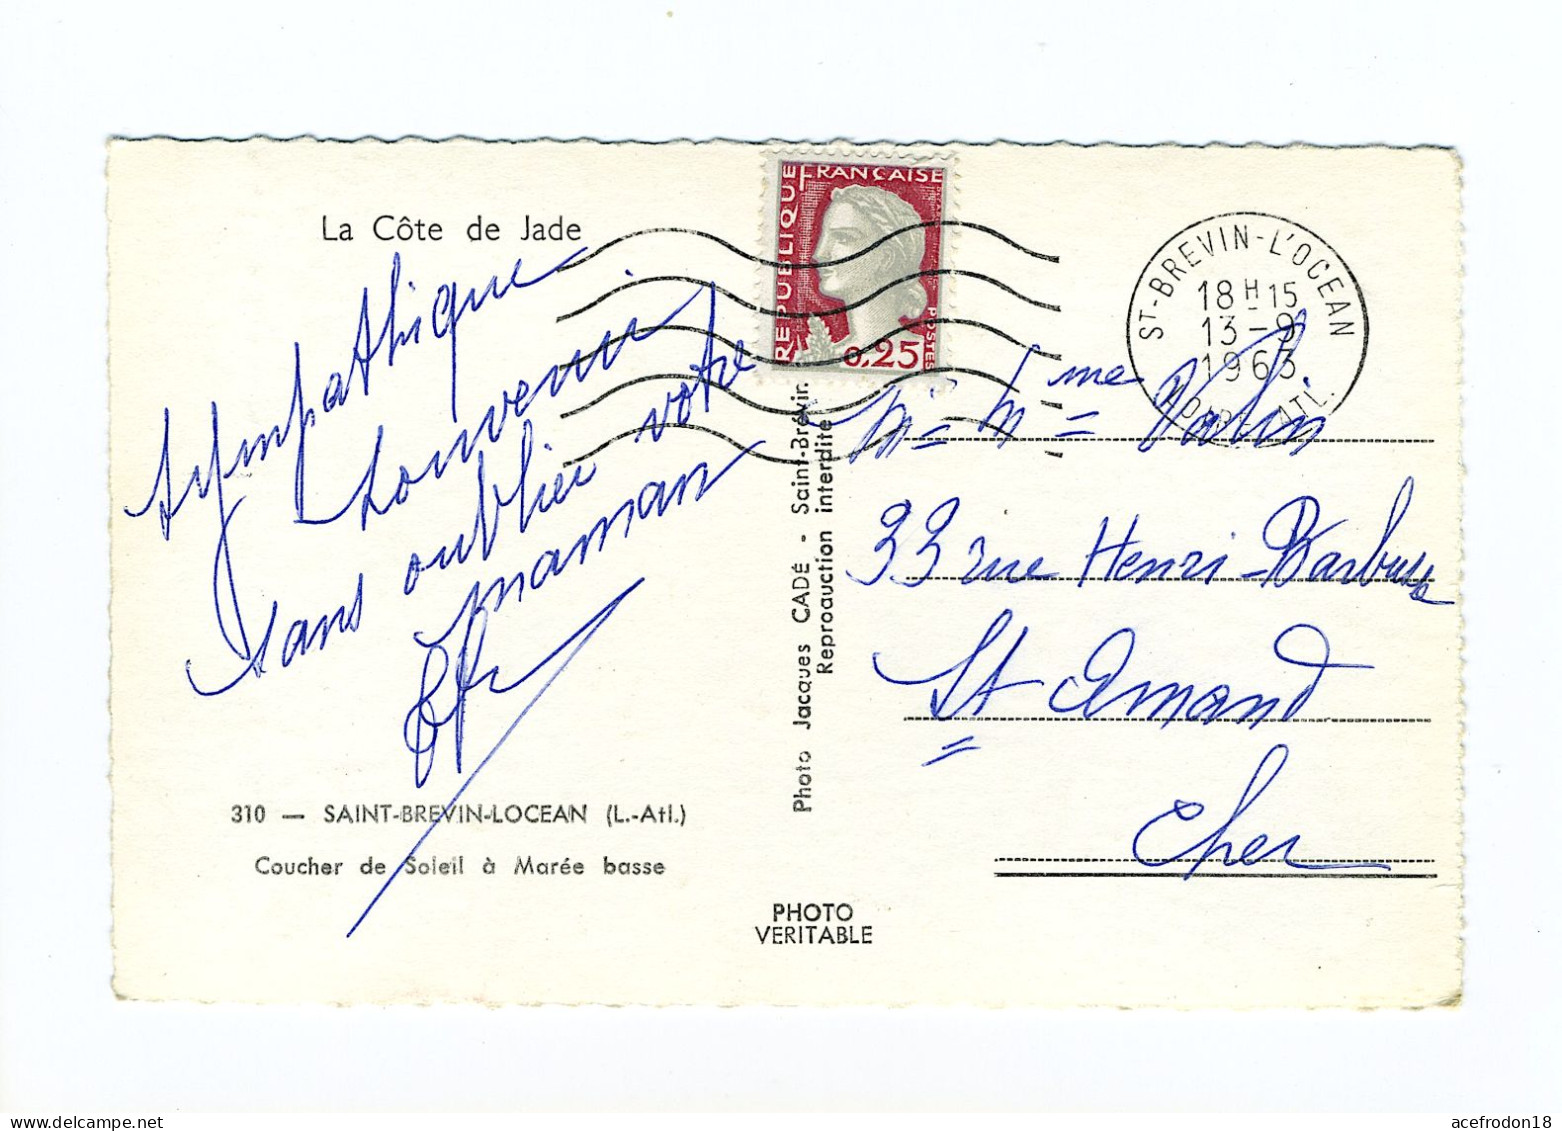 La Côte de Jade
sympathique
souvenir
sans oublier votre
maman
310 — SAINT-BREVIN-LOCEAN (L.-Atl.)
Coucher de Soleil à Marée basse
PHOTO
VERITABLE
Photo Jacques CADÉ - Saint-Brévin
Reproduction interdite
REPUBLIQUE FRANÇAISE
POSTES
0,25
ST-BREVIN-L'OCEAN
18 H 15
13 - 9
1963
ATL.
Mr = Mme =
33 rue Henri-Barbusse
St Amand
Cher
acefrodon18